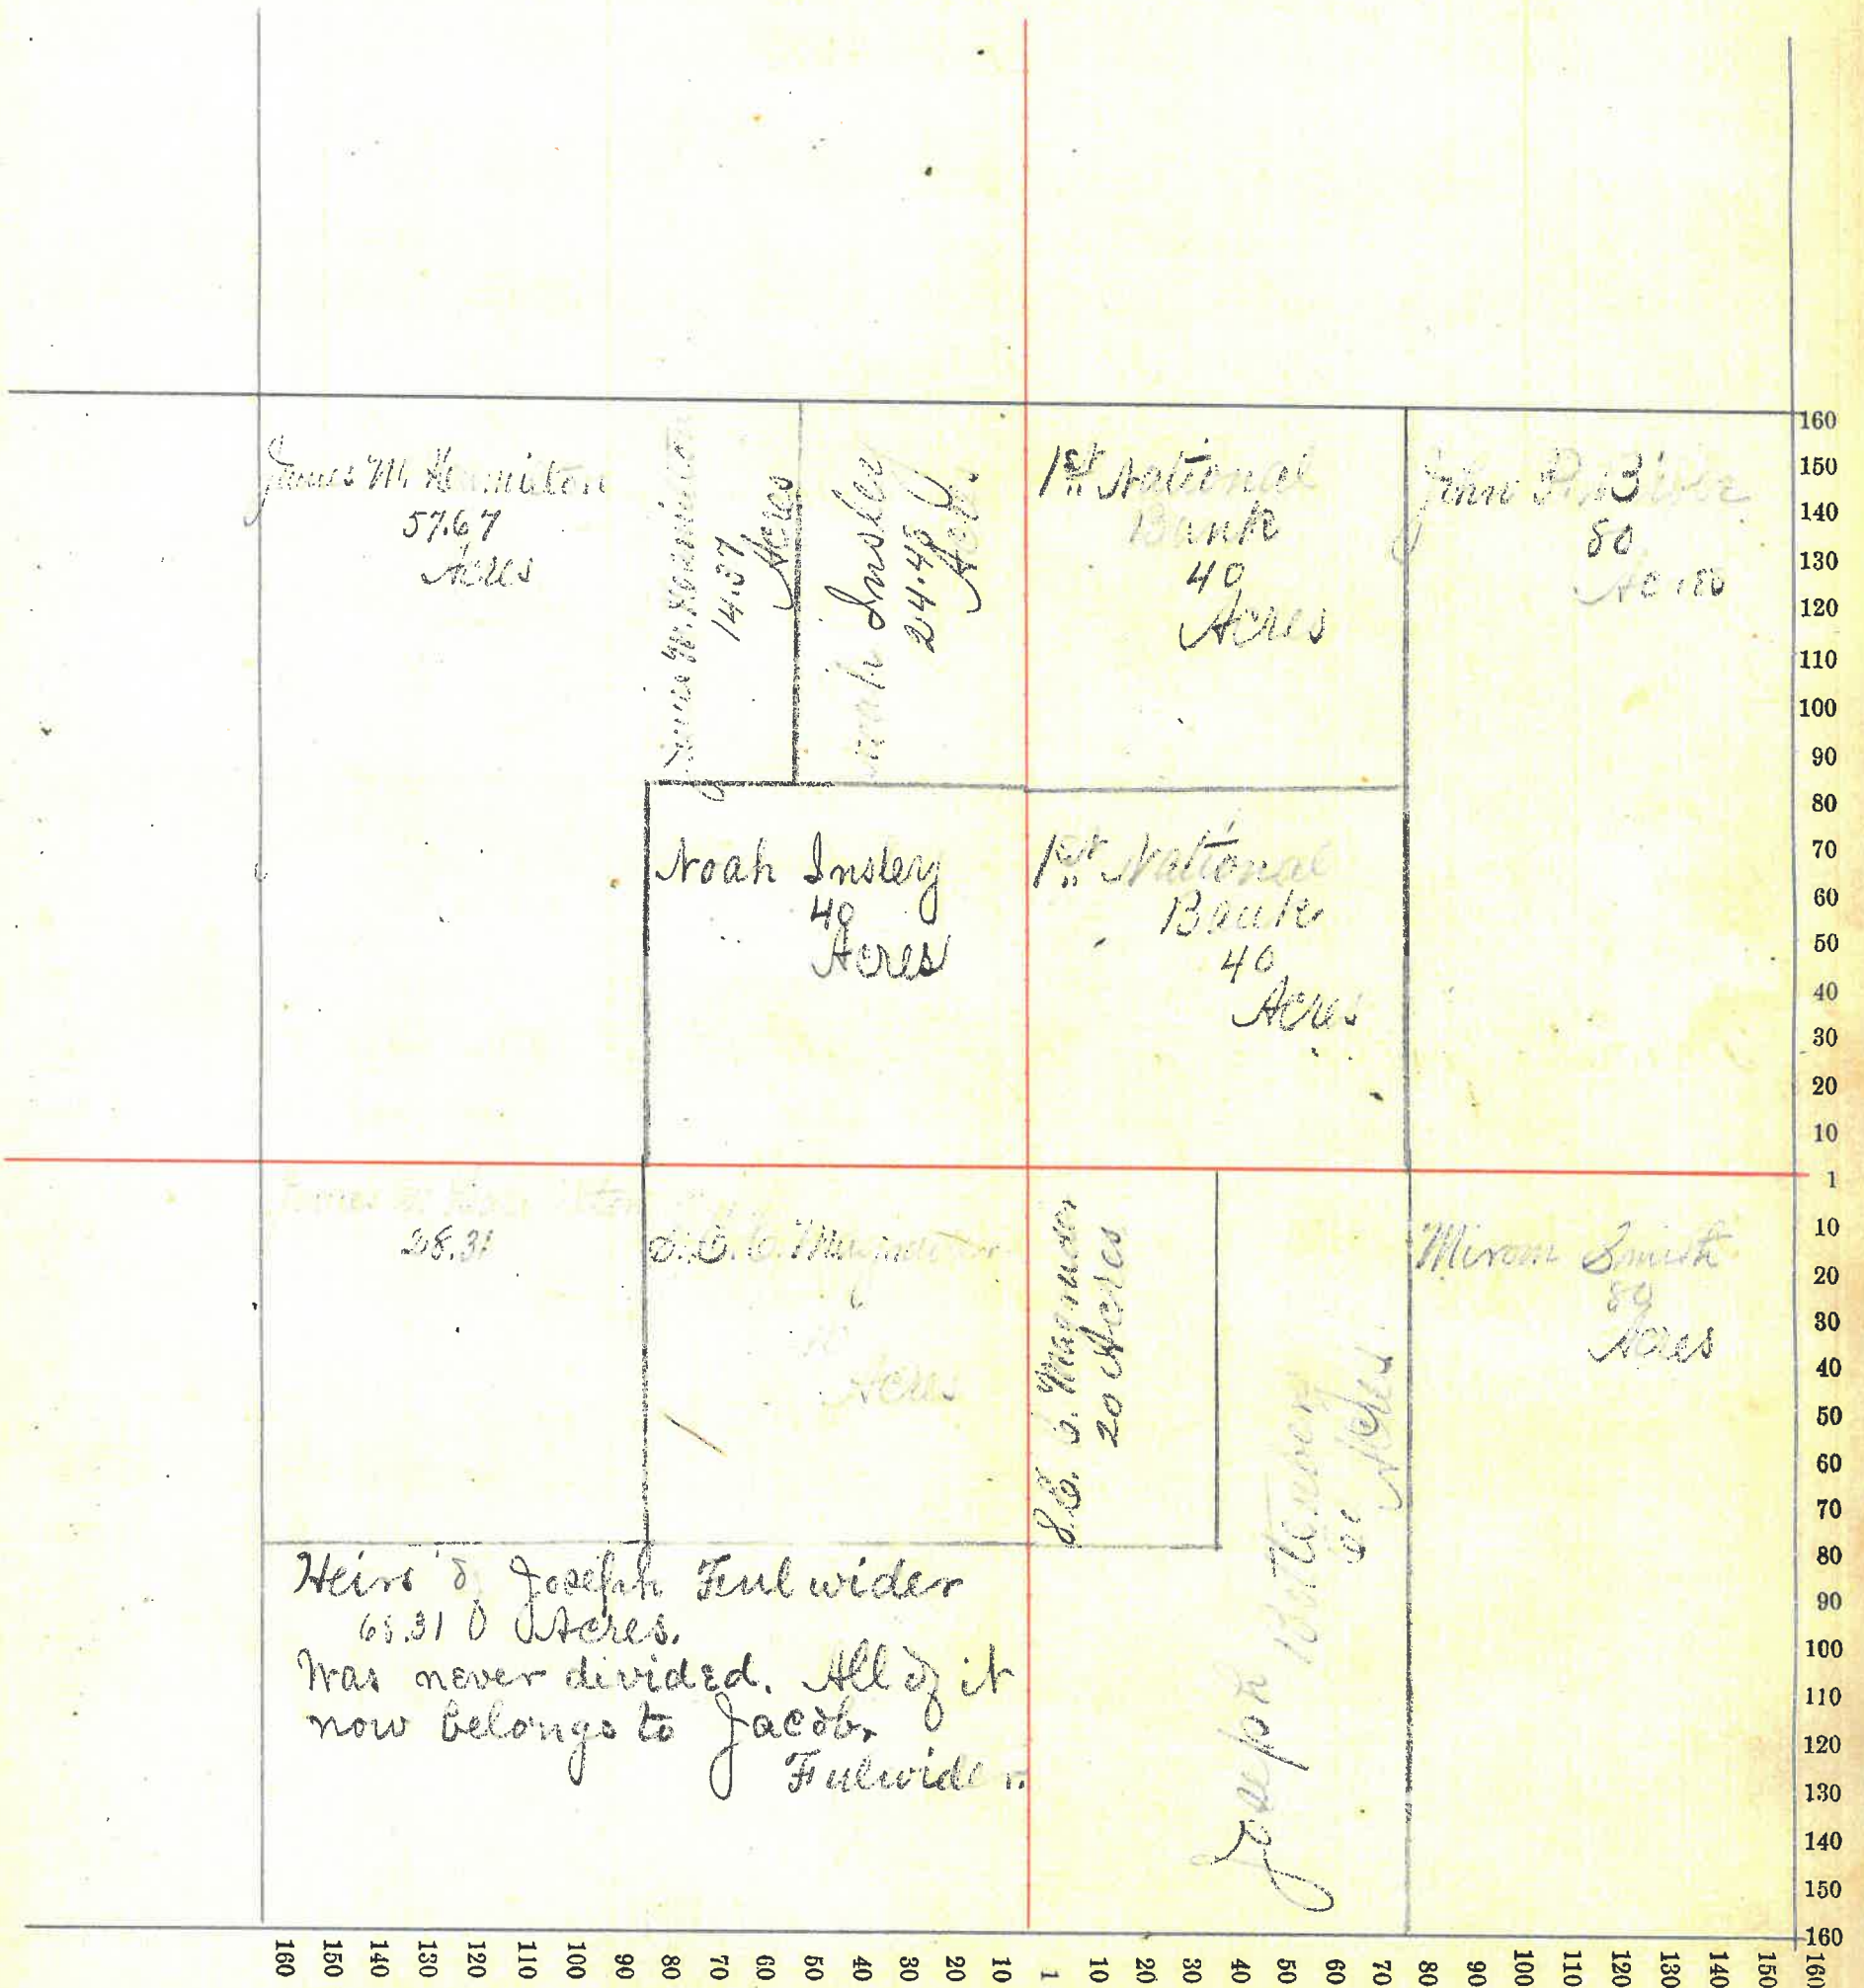 James M. Hamilton
57.67
Acres
14.57
Acres
Insley
24.48
1st National
Bank
40
Acres
John P.
80
Noah Insley
40
Acres
1st National
Bank
40
Acres
28.31
Acres
20 Acres
Joseph
Acres
Mirom Smith
80
Acres
Heirs of Joseph Fulwider
68.31 Acres.
Was never divided. All of it
now belongs to Jacob.
Fulwider.
160
150
140
130
120
110
100
90
80
70
60
50
40
30
20
10
1
10
20
30
40
50
60
70
80
90
100
110
120
130
140
150
160
160 150 140 130 120 110 100 90 80 70 60 50 40 30 20 10 1 10 20 30 40 50 60 70 80 90 100 110 120 130 140 150 160